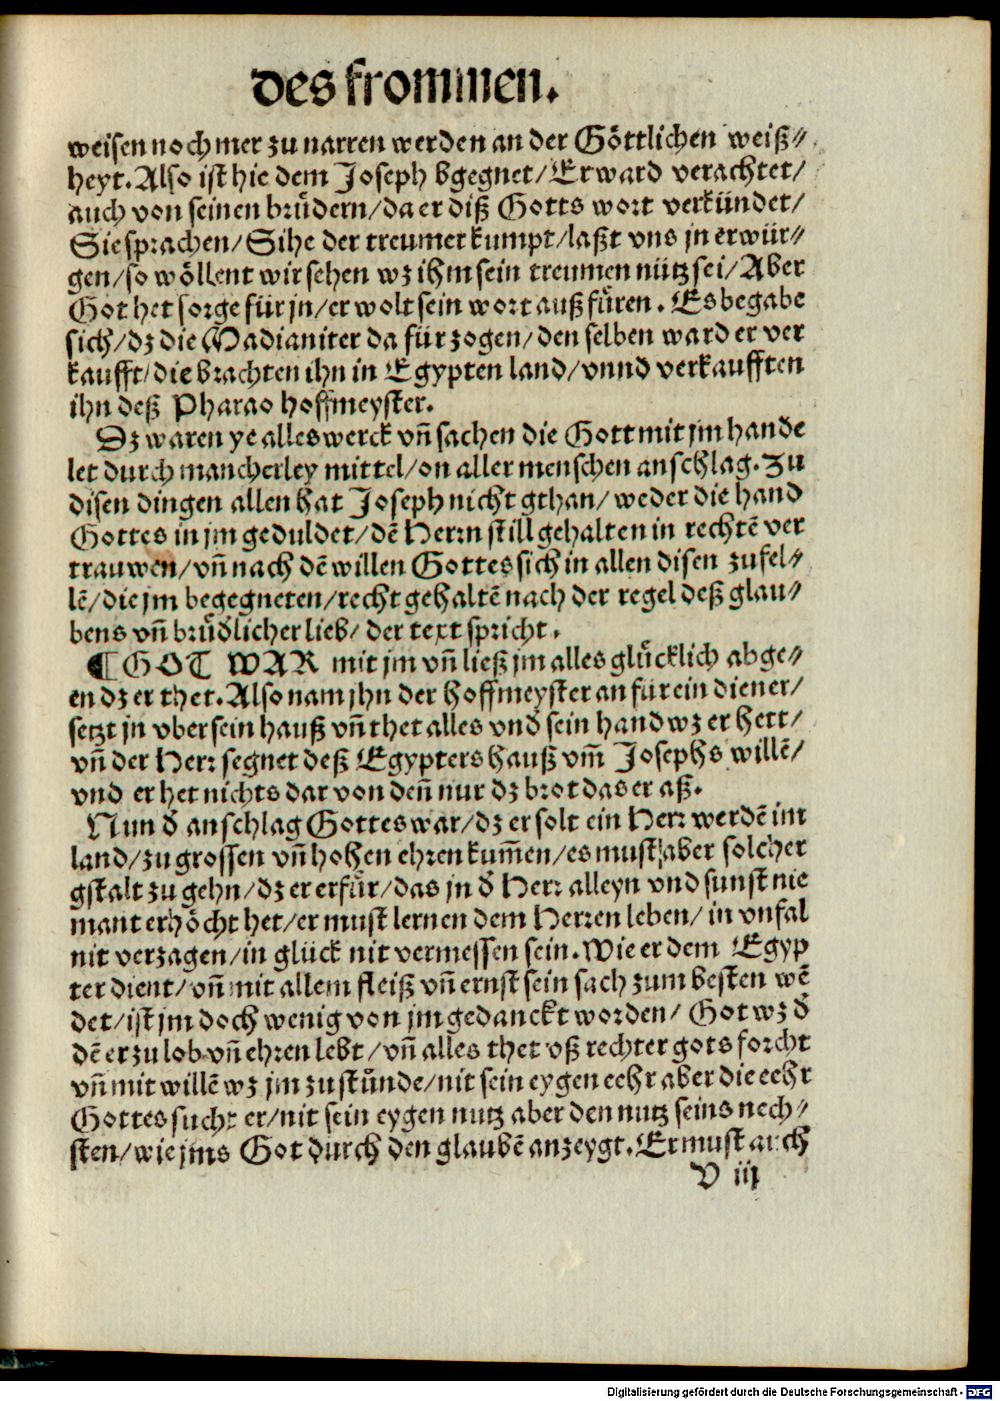 des frommen.
weisen noch mer zu narren werden an der Göttlichen weiß⸗
heyt. Also ist hie dem Joseph bgegnet/ Er ward verachtet/
auch von seinen brůdern/ da er diß Gotts wort verkündet/
Sie sprachen/ Sihe der treumer kumpt/ laßt vns jn erwür⸗
gen/ so wöllent wir sehen wz ihm sein treumen nütz sei/ Aber
Got het sorge für jn/ er wolt sein wort auß fůren. Es begabe
sich/ dz die Madianiter da für zogen/ den selben ward er ver
kaufft/ die brachten ihn in Egypten land/ vnnd verkaufften
ihn deß Pharao hoffmeyster.
Dz waren ye alles werck vñ sachen die Gott mit jm hande
let durch mancherley mittel/ on aller menschen anschlag. Zu
disen dingen allen hat Joseph nicht gthan/ weder die hand
Gottes in jm geduldet/ dẽ Herrn still gehalten in rechtẽ ver
trauwen/ vñ nach dẽ willen Gottes sich in allen disen zufel⸗
lẽ/ die jm begegneten/ recht gehaltẽ nach der regel deß glau⸗
bens vñ brůdlicher lieb/ der text spricht.
¶ GOT WAR mit jm vñ ließ jm alles glůcklich abge⸗
en dz er thet. Also nam jhn der hoffmeyster an für ein diener/
setzt jn vber sein hauß vñ thet alles vnđ sein hand wz er hett/
vñ der Herr segnet deß Egypters hauß vm̃ Josephs willẽ/
vnd er het nichts dar von den̄ nur dz brot das er aß.
Nun đ anschlag Gottes war/ dz er solt ein Herr werdẽ im
land/ zu grossen vñ hohen ehren kum̃en/ es must aber solcher
gstalt zu gehn/ dz er erfůr/ das jn đ Herr alleyn vnd sunst nie
mant erhöcht het/ er must lernen dem Herren leben/ in vnfal
nit verzagen/ in glück nit vermessen sein. Wie er dem Egyp
ter dient/ vñ mit allem fleiß vñ ernst sein sach zum besten wẽ
det/ ist jm doch wenig von jm gedanckt worden/ Got wz đ
dẽ er zu lob vñ ehren lebt/ vñ alles thet vß rechter gots forcht
vñ mit willẽ wz jm zu stůnde/ nit sein eygen eehr aber die eehr
Gottes sucht er/ nit sein eygen nutz aber den nutz seins nech⸗
sten/ wie jms Got durch den glaubẽ anzeygt. Er must auch
V iij
Digitalisierung gefördert durch die Deutsche Forschungsgemeinschaft - DFG